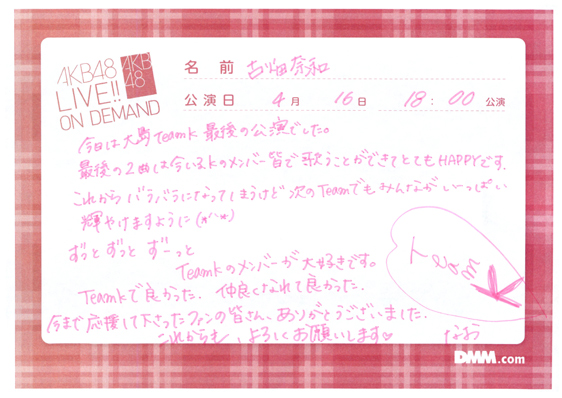 AKB48
LIVE!!
ON DEMAND
AKB
48
名 前 古畑奈和
公演日 4月 16日 18:00 公演
今日は大島Teamk最後の公演でした。
最後の2曲は今いるkのメンバー皆で歌うことができてとてもHAPPYです。
これからバラバラになってしまうけど次のTeamでもみんながいっぱい
輝やけますように(*^^*)
ずっとずっとずーっと
Teamkのメンバーが大好きです。
Teamkで良かった。仲良くなれて良かった。
今まで応援して下さったファンの皆さん、ありがとうございました。
これからも、よろしくお願いします♡
Team
K
なお
DMM.com